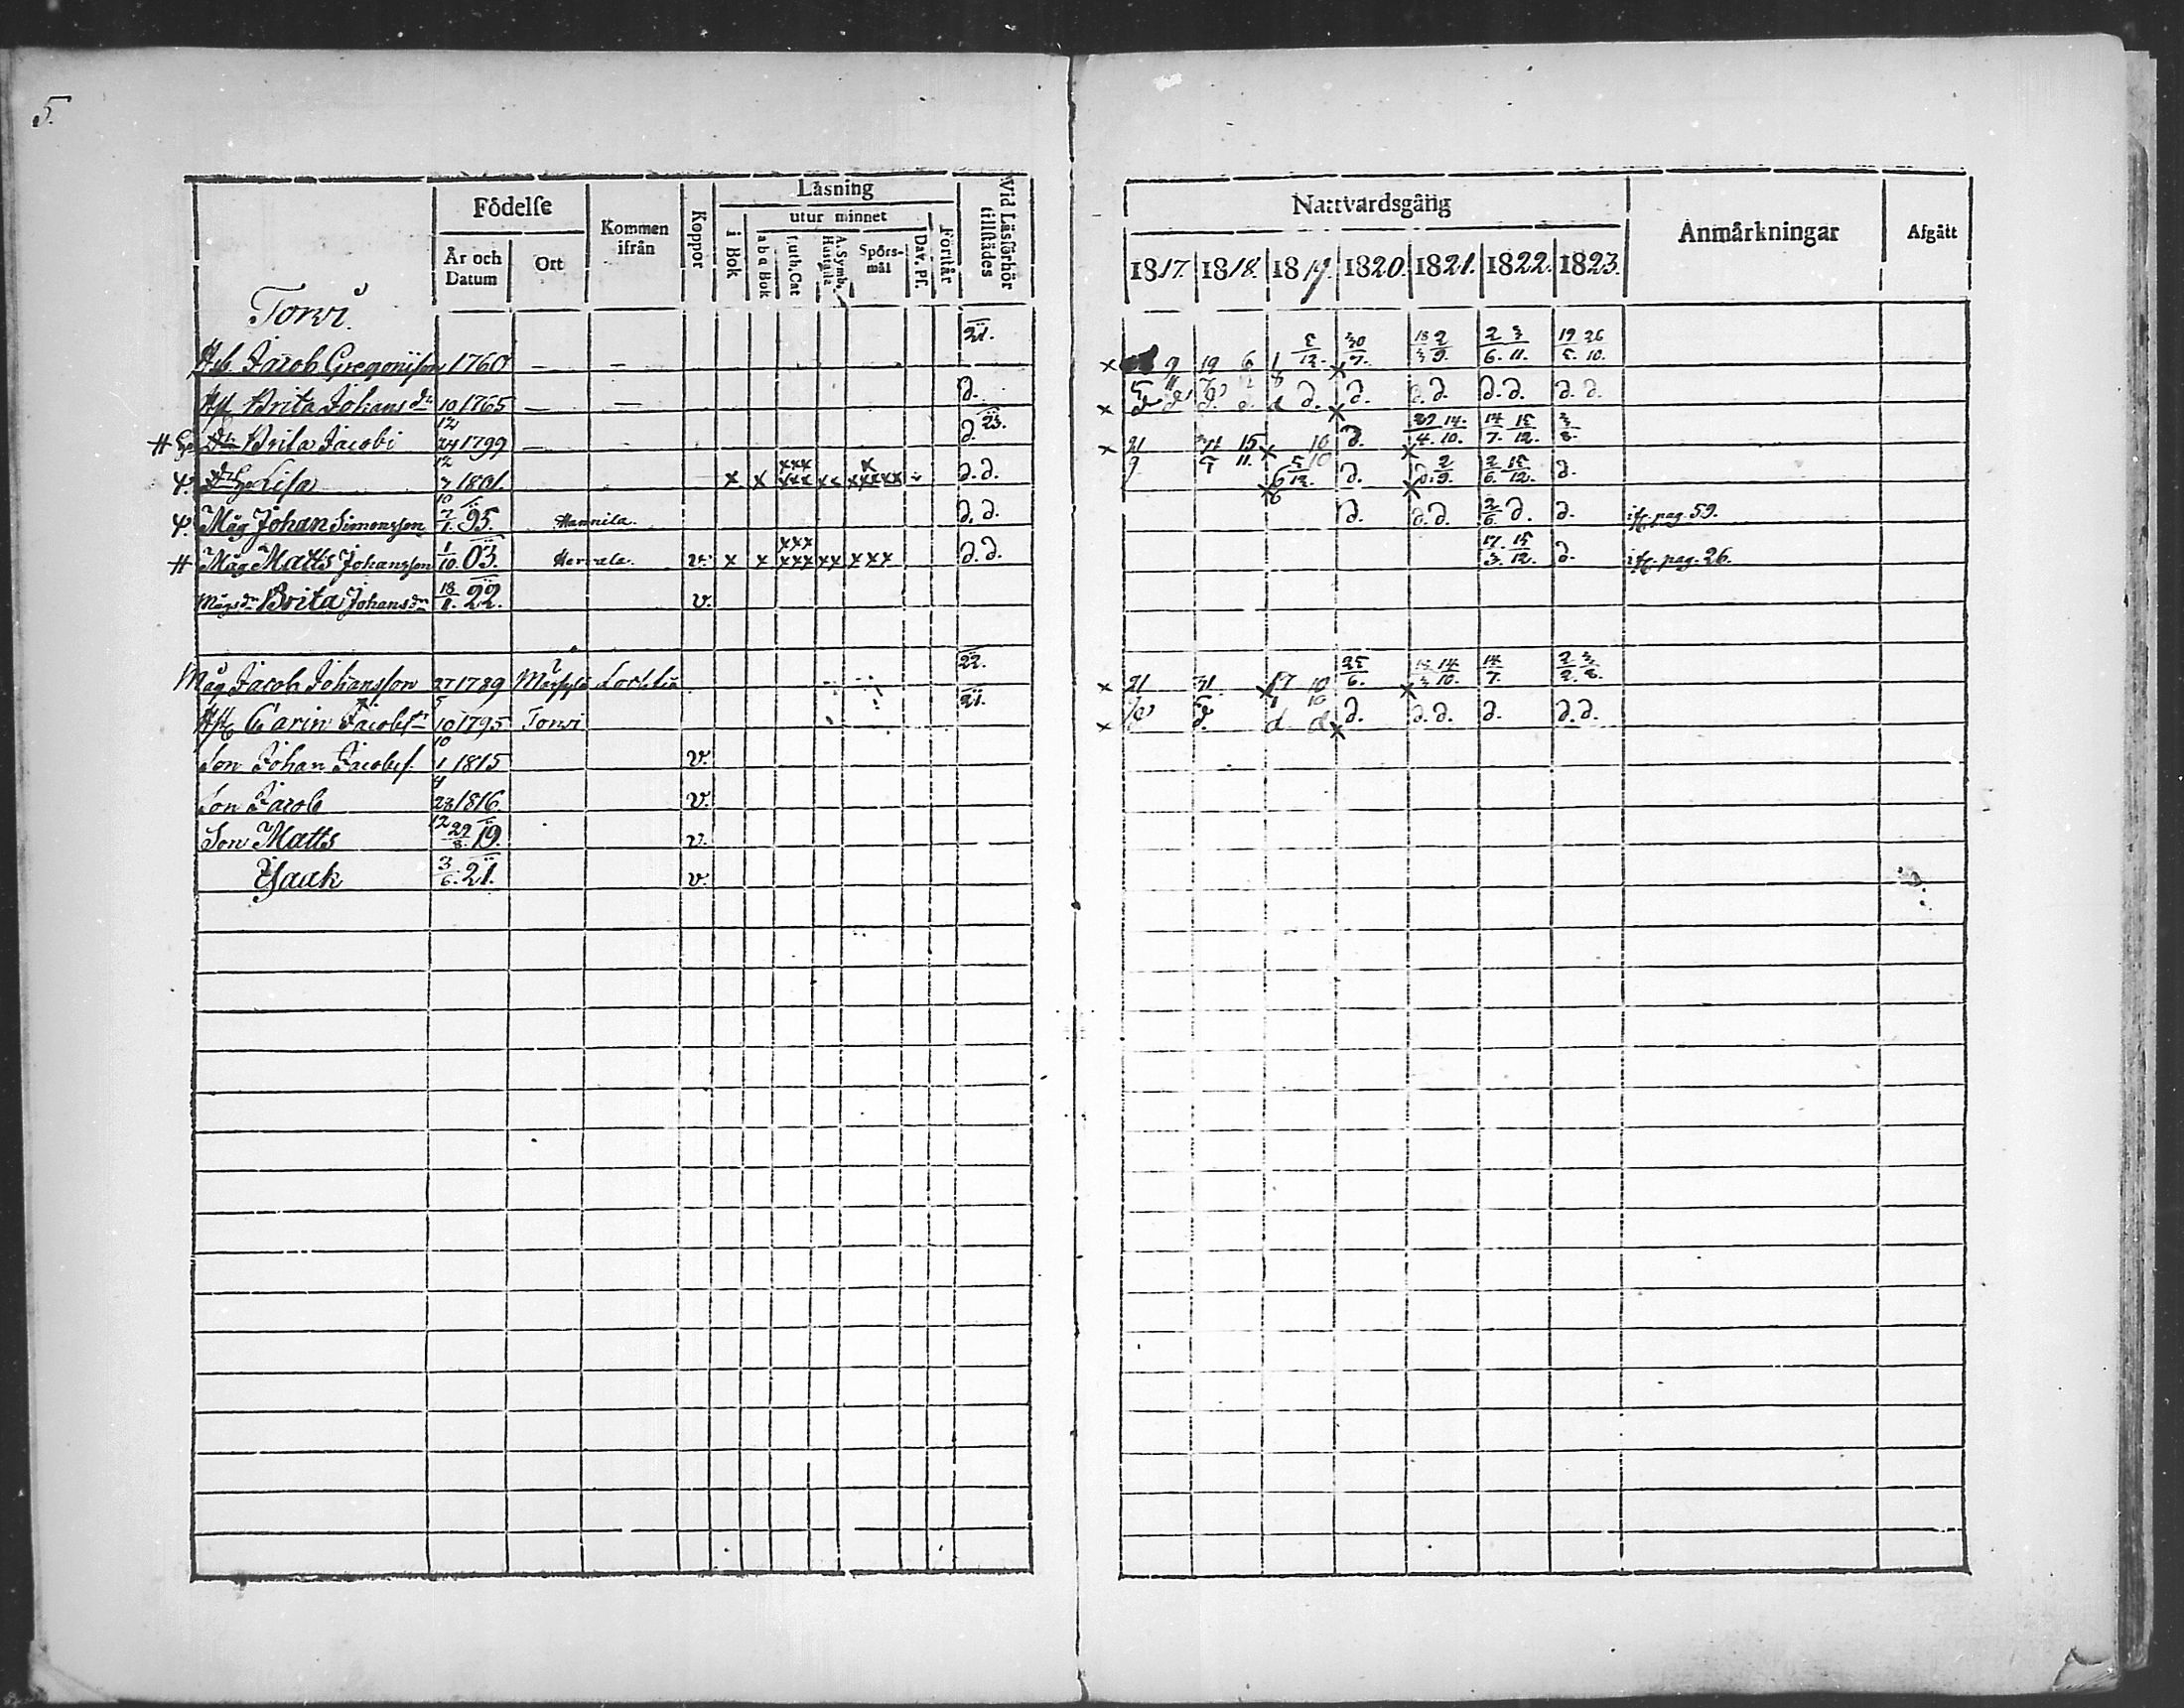 5.
Födelse
Läsning
Vid Läsförhör tillstädes
Kommen ifrån
Koppor
utur minnet
År och Datum
Ort
i Bok
a b a Bok
Luth. Cat
A. Symb. Hustafla
Spörs-mål
Dav. Ps.
Förstår
Nattvardsgång
Anmärkningar
Afgått
1817. 1818. 1819. 1820. 1821. 1822. 1823.
Torvi.
21.
Hb. Jacob Gregorisson 1760 — — 9 19 6 1 5/12. 30/9. 18/3 2/9. 2/6. 3/11. 19/5. 26/10.
Hst Brita Johans dr 10 1765 — — d. d. d. d. d. d. d. d. d.
12
# Brita Jacobi 24 1799 — d. 23. 21 31 15 10 d. 14. 4. 10. 14/7. 15/12. 3/8.
12
Lisa 7 1801. x x xxx xxx xx x xxxxx ÷ d. d. 9 5 11. 6 5/12. d. d. 2/9. 2/6. 15/12. d.
10
Måg Johan Simonsson 7/1. 95. Hannila. d. d. d. d. d. 2/6. d. d. pag. 59.
# Måg Matts Johansson 1/10. 03. Hervala. v. x x xxx xxx xx xxx d. d. 17/3. 15/12. d. pag. 26.
Mågs dr Brita Johans dr 18/1. 22. v.
22.
Måg Jacob Johansson 27 1789 Lochtia 21 31 17 10 25/6. 14/10. 14/7. 2/2. 3/8.
5
21.
Carin Jacobs dr 10 1795 Torvi d. d d d. d. d. d. d. d.
10
Son Johan Jacobss. 1 1815 v.
4
Son Jacob 23 1816. v.
12
Son Matts 29/8. 19. v.
Isaak 3/6. 21. v.